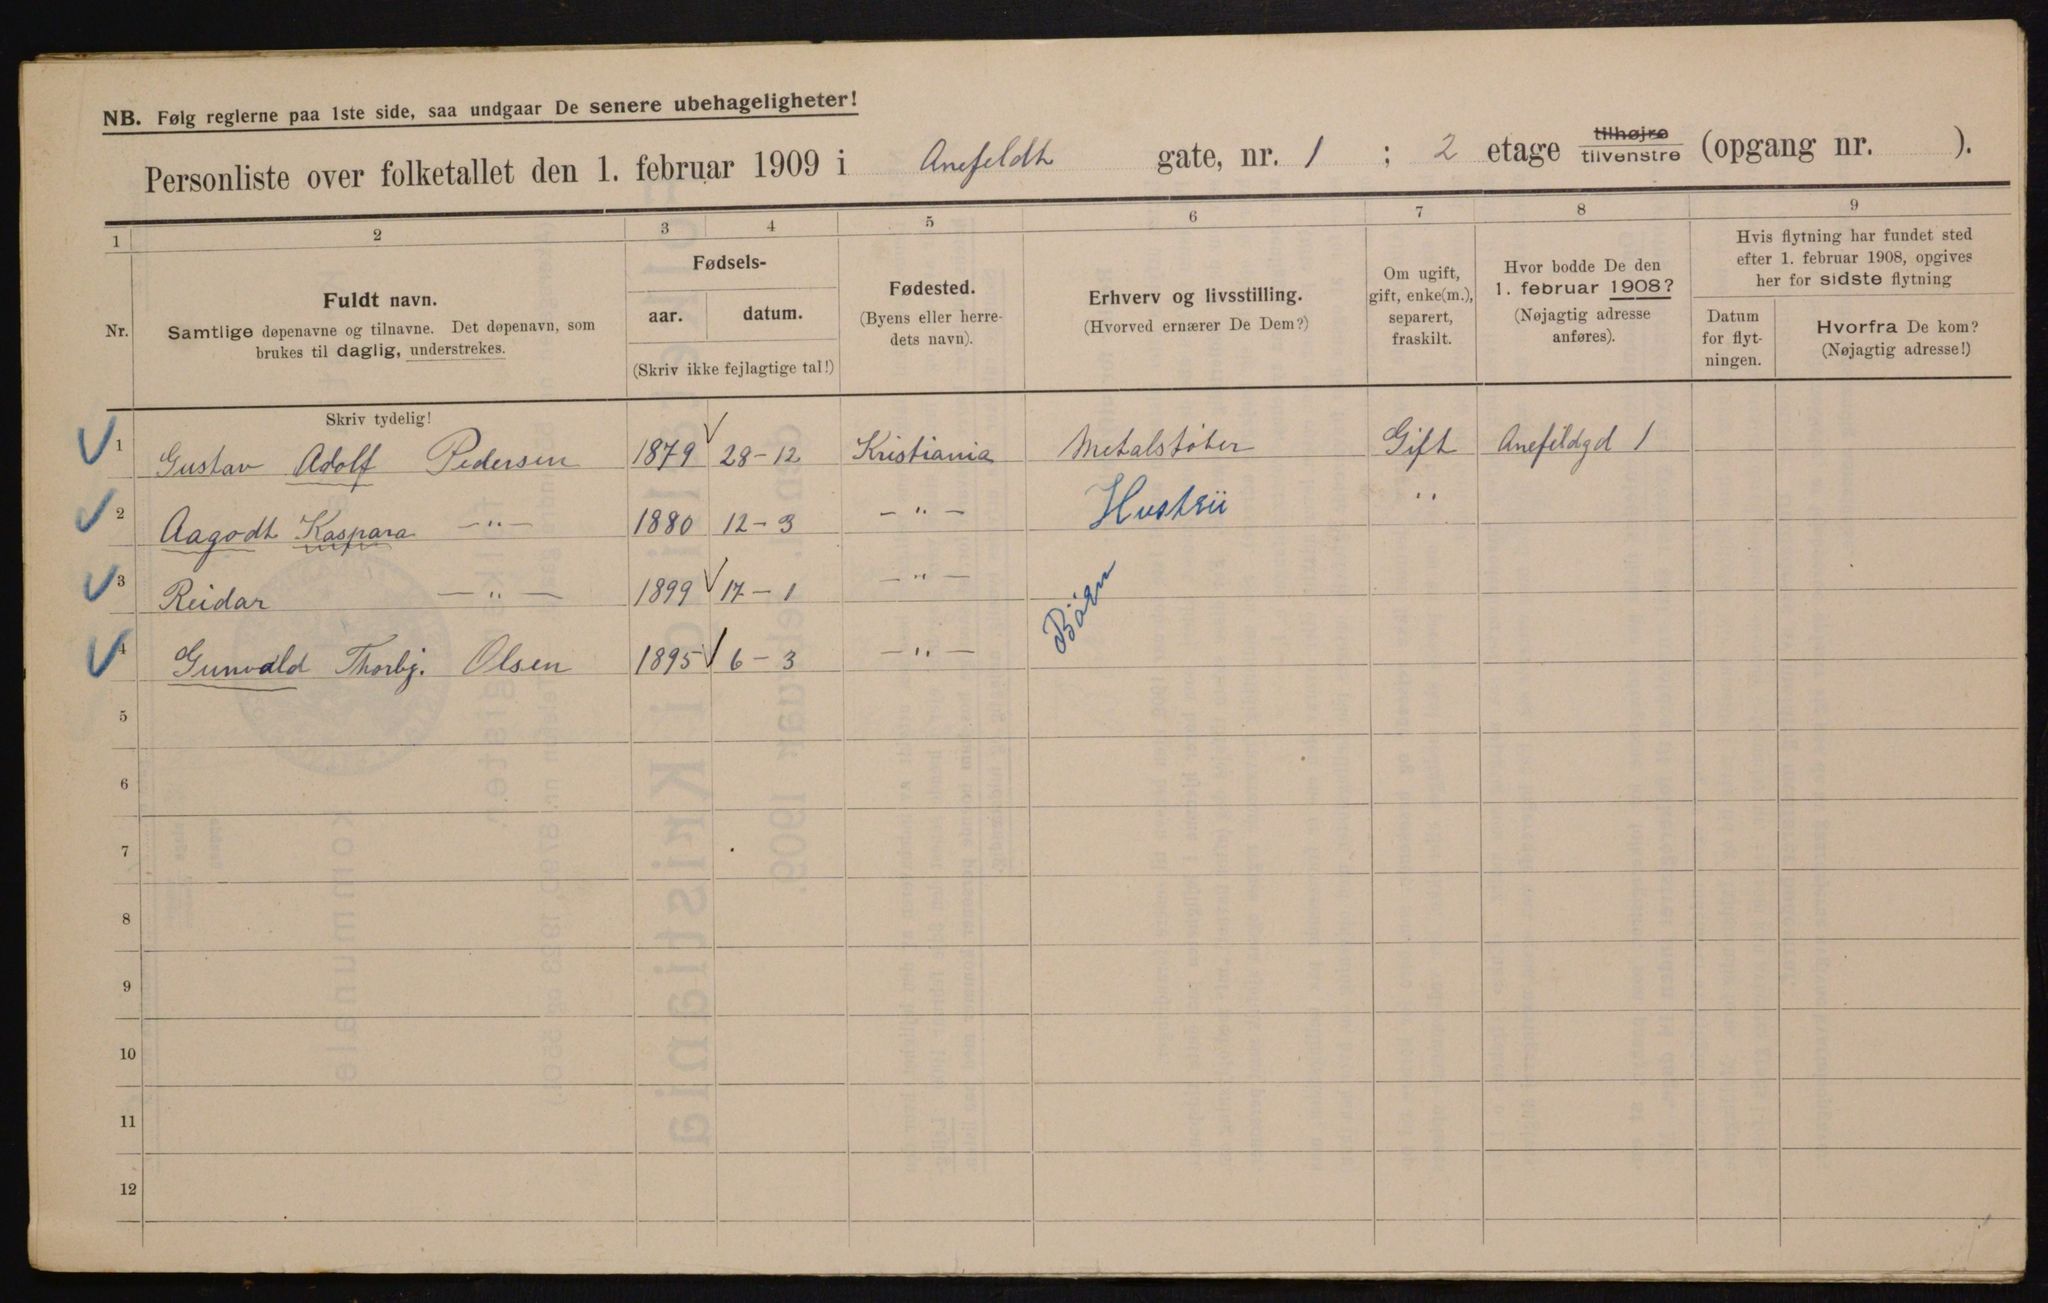 NB. Følg reglerne paa 1ste side, saa undgaar De senere ubehageligheter!
Personliste over folketallet den 1. februar 1909 i Anefeldt gate, nr. 1 ; 2 etage tilhøjre tilvenstre (opgang nr. ).
1 2 3 4 5 6 7 8 9
Nr.
Fuldt navn.
Samtlige døpenavne og tilnavne. Det døpenavn, som
brukes til daglig, understrekes.
Fødsels-
aar. datum.
(Skriv ikke fejlagtige tal!)
Fødested.
(Byens eller herre-
dets navn).
Erhverv og livsstilling.
(Hvorved ernærer De Dem?)
Om ugift,
gift, enke(m.),
separert,
fraskilt.
Hvor bodde De den
1. februar 1908?
(Nøjagtig adresse
anføres).
Hvis flytning har fundet sted
efter 1. februar 1908, opgives
her for sidste flytning
Datum
for flyt-
ningen.
Hvorfra De kom?
(Nøjagtig adresse!)
Skriv tydelig!
1 Gustav Adolf Pedersen 1879 28-12 Kristiania Metalstøber Gift Anefeldgd 1
2 Aagodt Kaspara —"— 1880 12-3 —"— Hustru "
3 Reidar —"— 1899 17-1 —"—
Børn
4 Gunvald Thorbj. Olsen 1895 6-3 —"—
5
6
7
8
9
10
11
12